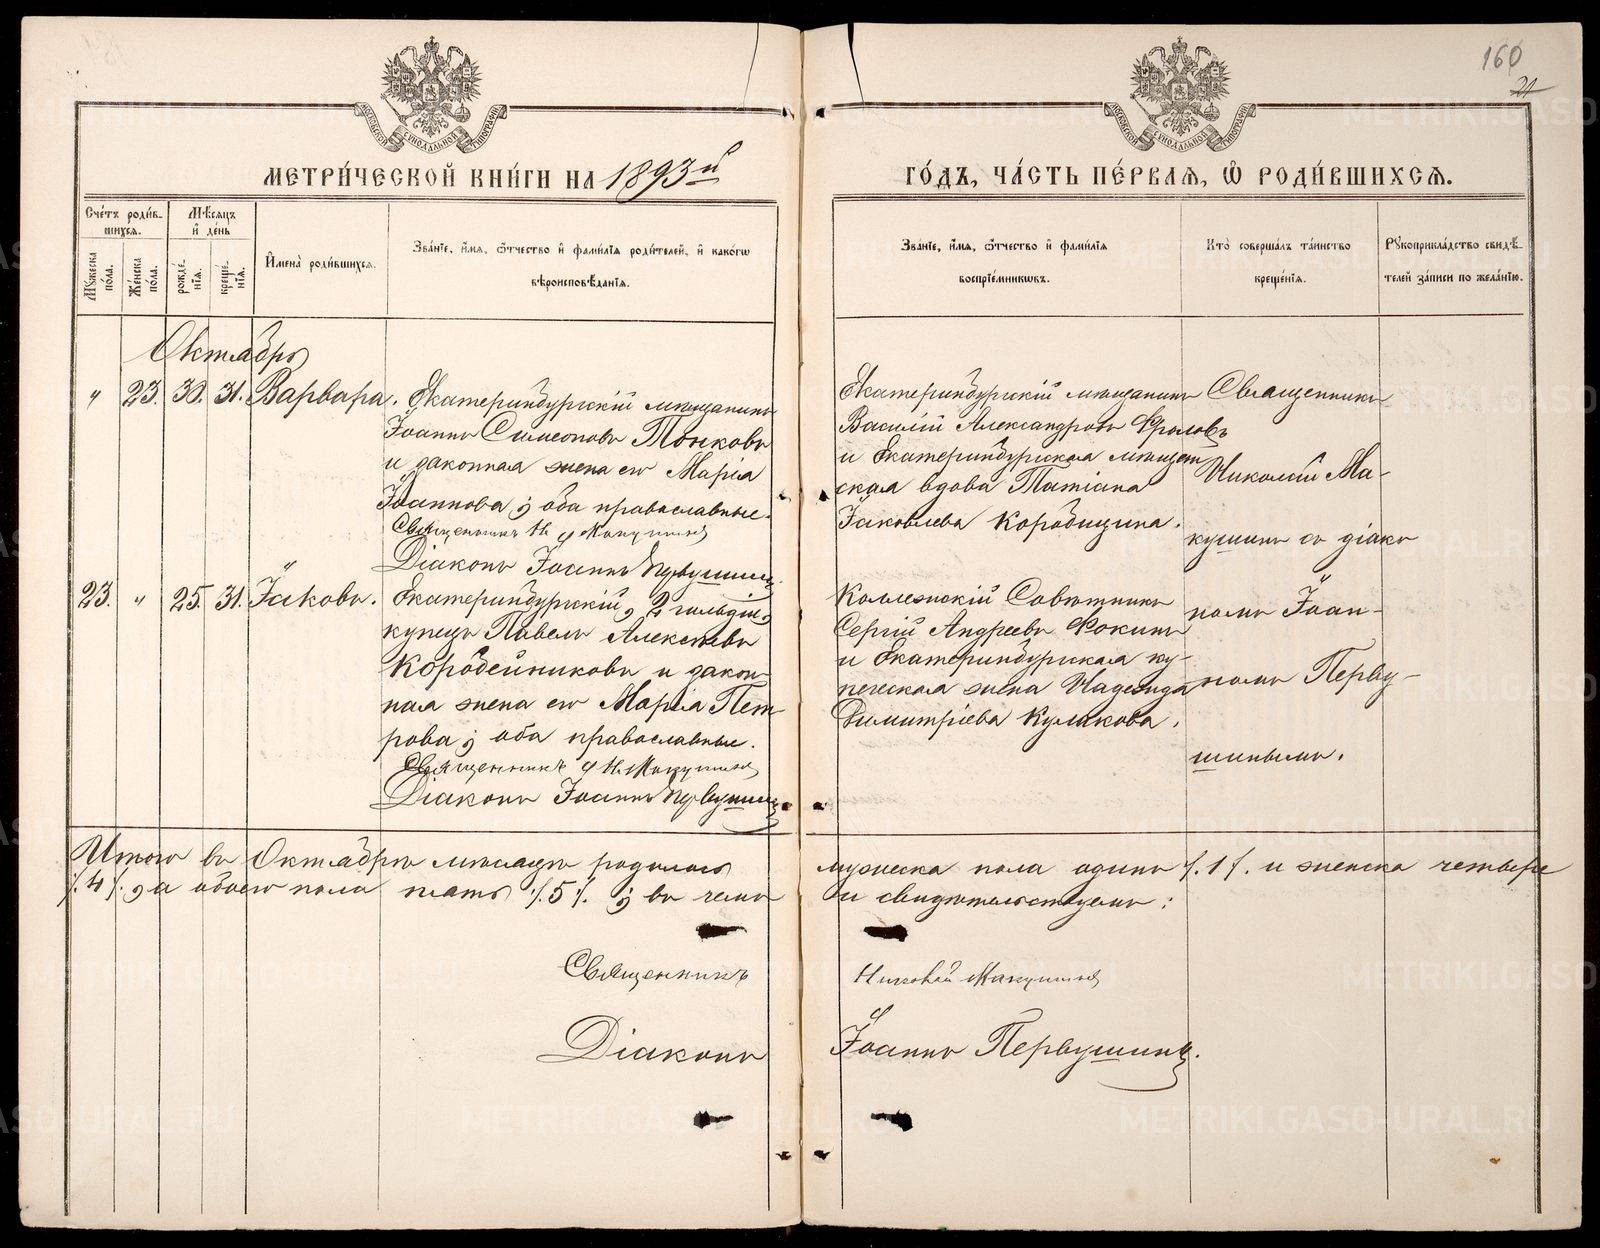 160
21
МОСКОВСКОЙ СѴНОДАЛЬНОЙ ТИПОГРАФІИ
МОСКОВСКОЙ СѴНОДАЛЬНОЙ ТИПОГРАФІИ
МЕТРИ́ЧЕСКОЙ КНИ́ГИ НА 1893й
ГО́ДЪ, ЧА́СТЬ ПЕ́РВАЯ, Ѡ РОДИ́ВШИХСЯ.
Сче́тъ роди́в-
шихся.
Мѣ́сяцъ
и҆ де́нь
Му́жеска по́ла.
Же́нска по́ла.
рожде́-
нїя.
креще́-
нїя.
И҆мена̀ роди́вшихся.
Зва́нїе, и҆́мя, ѻ҆́тчество и҆ фами́лїя роди́телей, и҆ како́гѡ
вѣроисповѣ́данїя.
Зва́нїе, и҆́мя, ѻ҆́тчество и҆ фами́лїя
воспрїе́мникѡвъ.
Кто̀ соверша́лъ та́инство
креще́нїя.
Рꙋкоприкла́дство свидѣ́-
телей за́писи по жела́нїю.
Октябрь
" 23. 30. 31. Варвара.
Екатеринбургскій мѣщанинъ
Іоаннъ Симеоновъ Тонковъ
и законная жена его Марія
Іоаннова; оба православные.
Священникъ Н. Макушинъ
Діаконъ Іоаннъ Первушинъ
Екатеринбургскій мѣщанинъ
Василій Александровъ Фроловъ
и Екатеринбургская мѣщан
ская вдова Татіана
Іаковлева Коробицина.
23. " 25. 31. Іаковъ.
Екатеринбургскій, 2 гильдіи,
купецъ Павелъ Алексѣевъ
Коробейниковъ и закон-
ная жена его Марія Пет-
рова; оба православные.
Священникъ Н. Макушинъ
Діаконъ Іоаннъ Первушинъ
Коллежскій Совѣтникъ
Сергій Андреевъ Фокинъ
и Екатеринбургская ку-
печеская жена Надежда
Димитріева Кулакова.
Священникъ
Николай Ма-
кушинъ съ діако
номъ Іоан-
номъ Перву-
шинымъ.
Итого въ Октябрѣ мѣсяцѣ родилось мужеска пола одинъ /.1/. и женска четверо
/.4/. а обоего пола пять /.5/.; въ чемъ и свидѣтельствуемъ:
Священникъ Николай Макушинъ
Діаконъ Іоаннъ Первушинъ.
METRIKI.GASO-URAL.RU